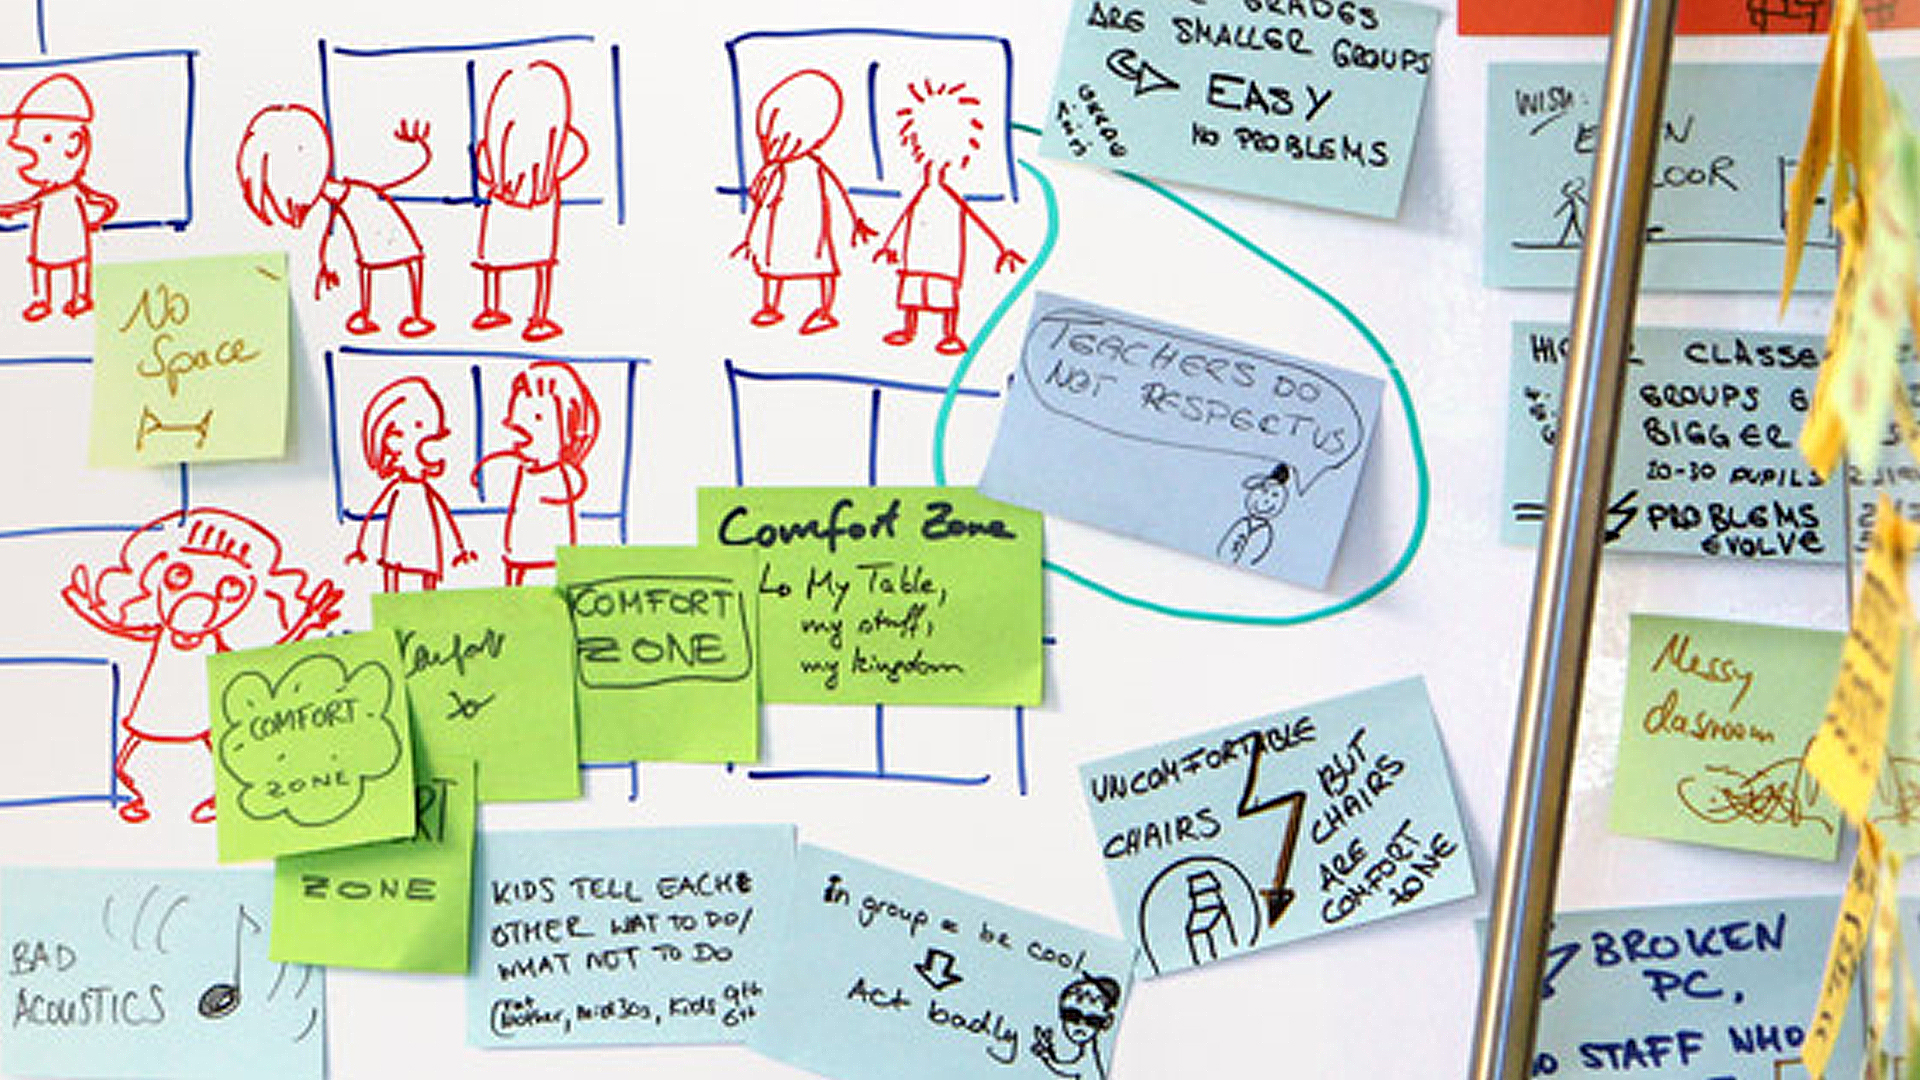 GRADES
ARE SMALLER GROUPS
EASY
NO PROBLEMS
1. GRADE
WISH:
No
Space
TEACHERS DO
NOT RESPECT US
CLASSE
GROUPS
BIGGER
20-30 PUPILS
PROBLEMS
EVOLVE
Comfort Zone
My Table,
my stuff,
my kingdom
COMFORT
ZONE
COMFORT
ZONE
RT
ZONE
Messy
classroom
UNCOMFORTABLE
CHAIRS
BUT
CHAIRS
ARE
COMFORT
ZONE
BAD
ACOUSTICS
KIDS TELL EACH
OTHER WAT TO DO/
WHAT NOT TO DO
Kids 9th
6th
in group = be cool
Act badly
BROKEN
PC,
STAFF